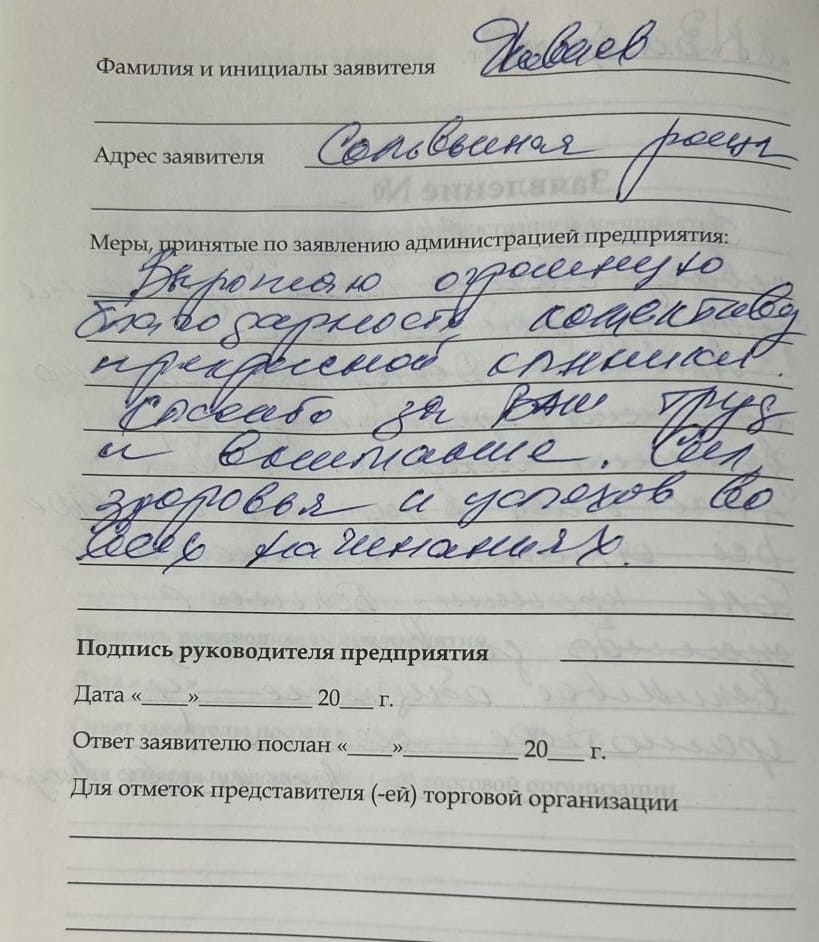 Фамилия и инициалы заявителя
Адрес заявителя Соловьиная роща
Меры, принятые по заявлению администрацией предприятия:
Выражаю огромную
благодарность коллективу
прекрасной клиники.
Спасибо за ВАШ труд
и внимание. Сил,
здоровья и успехов во
всех начинаниях.
Подпись руководителя предприятия
Дата «____»__________ 20___ г.
Ответ заявителю послан «____»__________ 20___ г.
Для отметок представителя (-ей) торговой организации